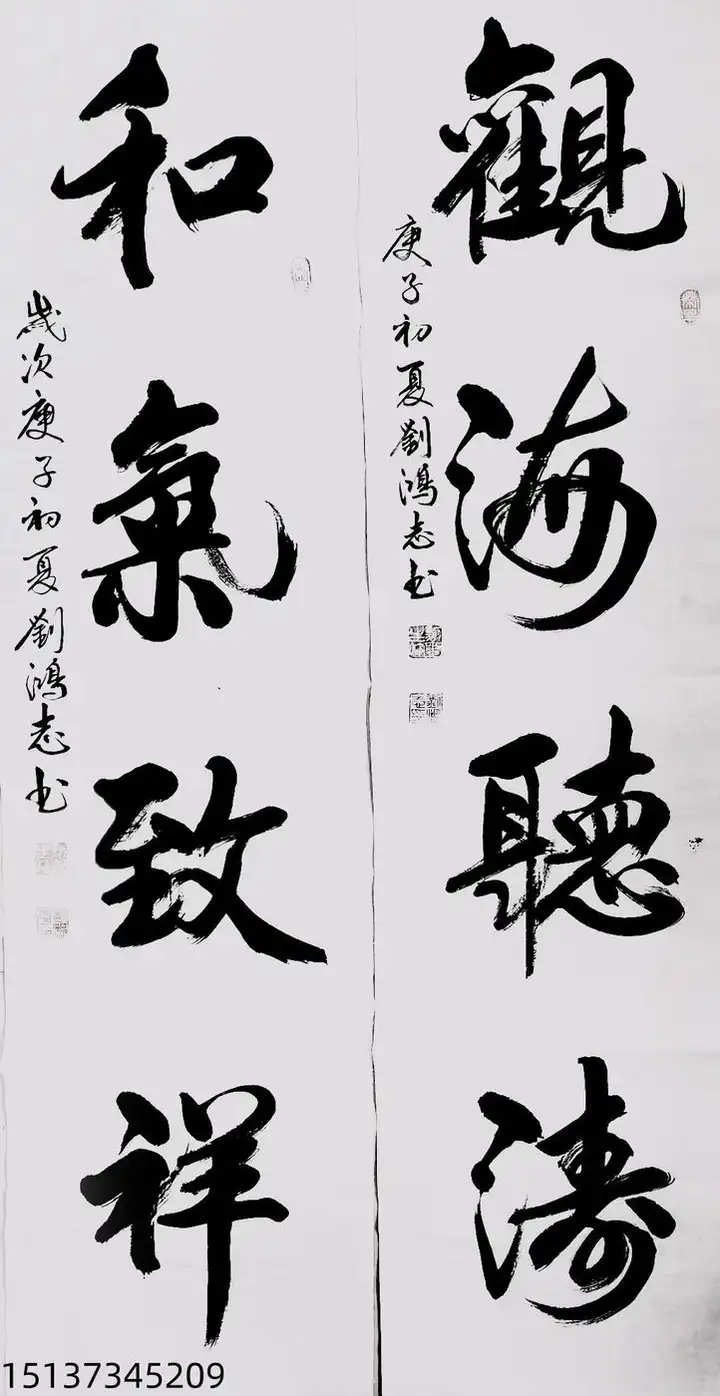 觀海聽濤
庚子初夏劉鴻志书
和氣致祥
歲次庚子初夏劉鴻志书
15137345209